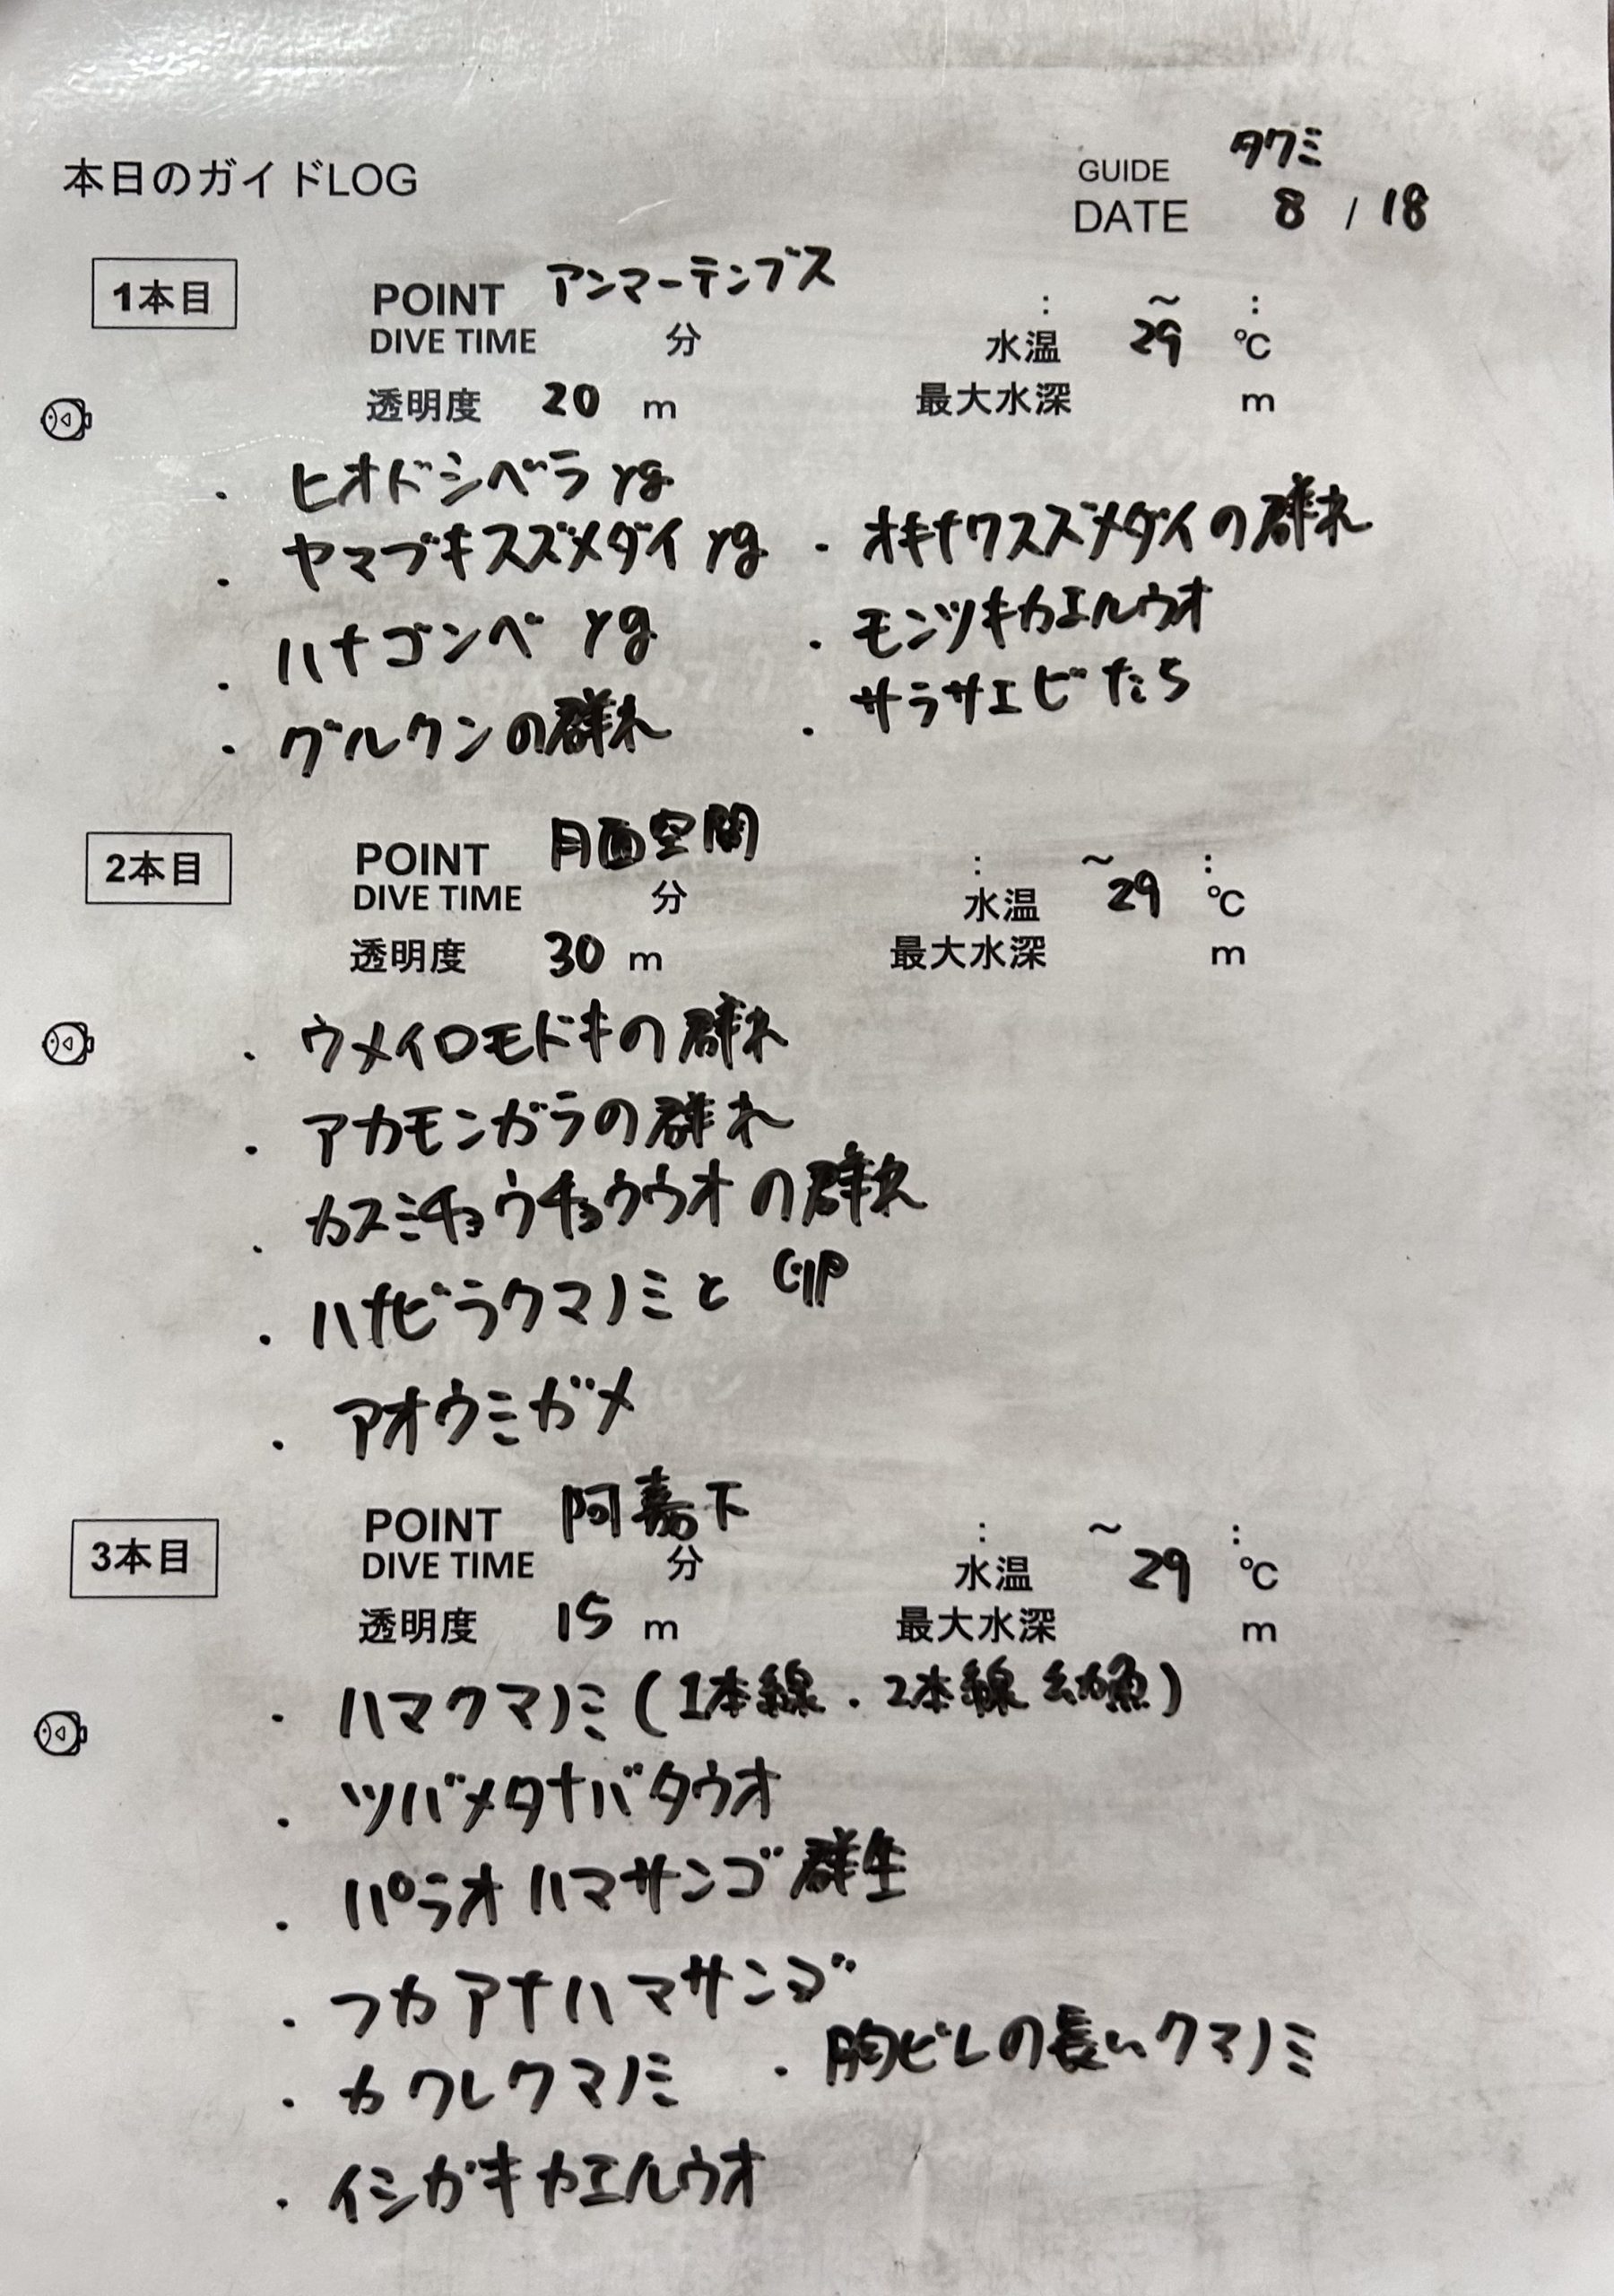 本日のガイドLOG
GUIDE タクミ
DATE 8 / 18
1本目
POINT アンマーテンブス : ～ :
DIVE TIME 分 水温 29 ℃
透明度 20 m 最大水深 m
・ヒオドシベラ yg
・ヤマブキスズメダイ yg ・オキナワスズメダイの群れ
・ハナゴンベ yg ・モンツキカエルウオ
・グルクンの群れ ・サラサエビたち
2本目
POINT 月面空間 : ～ :
DIVE TIME 分 水温 29 ℃
透明度 30 m 最大水深 m
・ウメイロモドキの群れ
・アカモンガラの群れ
・カスミチョウチョウウオの群れ
・ハナビラクマノミと卵
・アオウミガメ
3本目
POINT 阿嘉下 : ～ :
DIVE TIME 分 水温 29 ℃
透明度 15 m 最大水深 m
・ハマクマノミ(1本線・2本線 幼魚)
・ツバメタナバタウオ
・パラオハマサンゴ群生
・フカアナハマサンゴ
・カクレクマノミ ・胸ビレの長いクマノミ
・イシガキカエルウオ